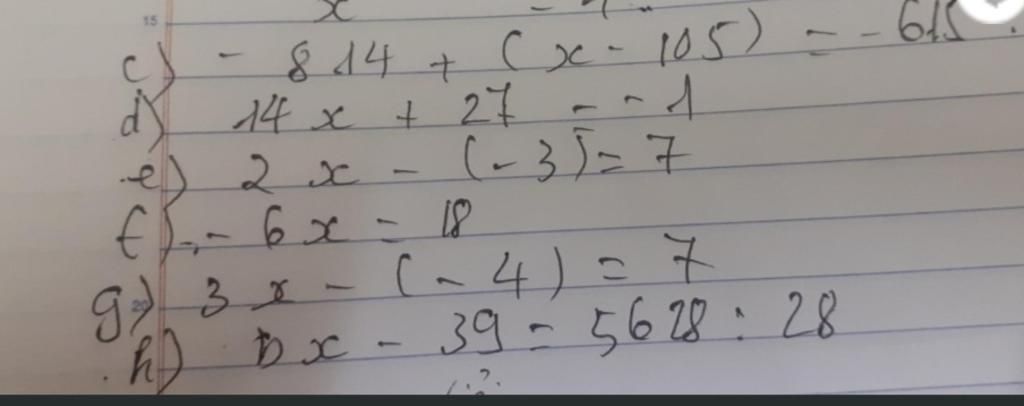 c) - 814 + (x - 105) = - 615.
d) 14x + 27 = - 1
e) 2x - (-3) = 7
f) - 6x = 18
g) 3x - (-4) = 7
h) x - 39 = 5628 : 28